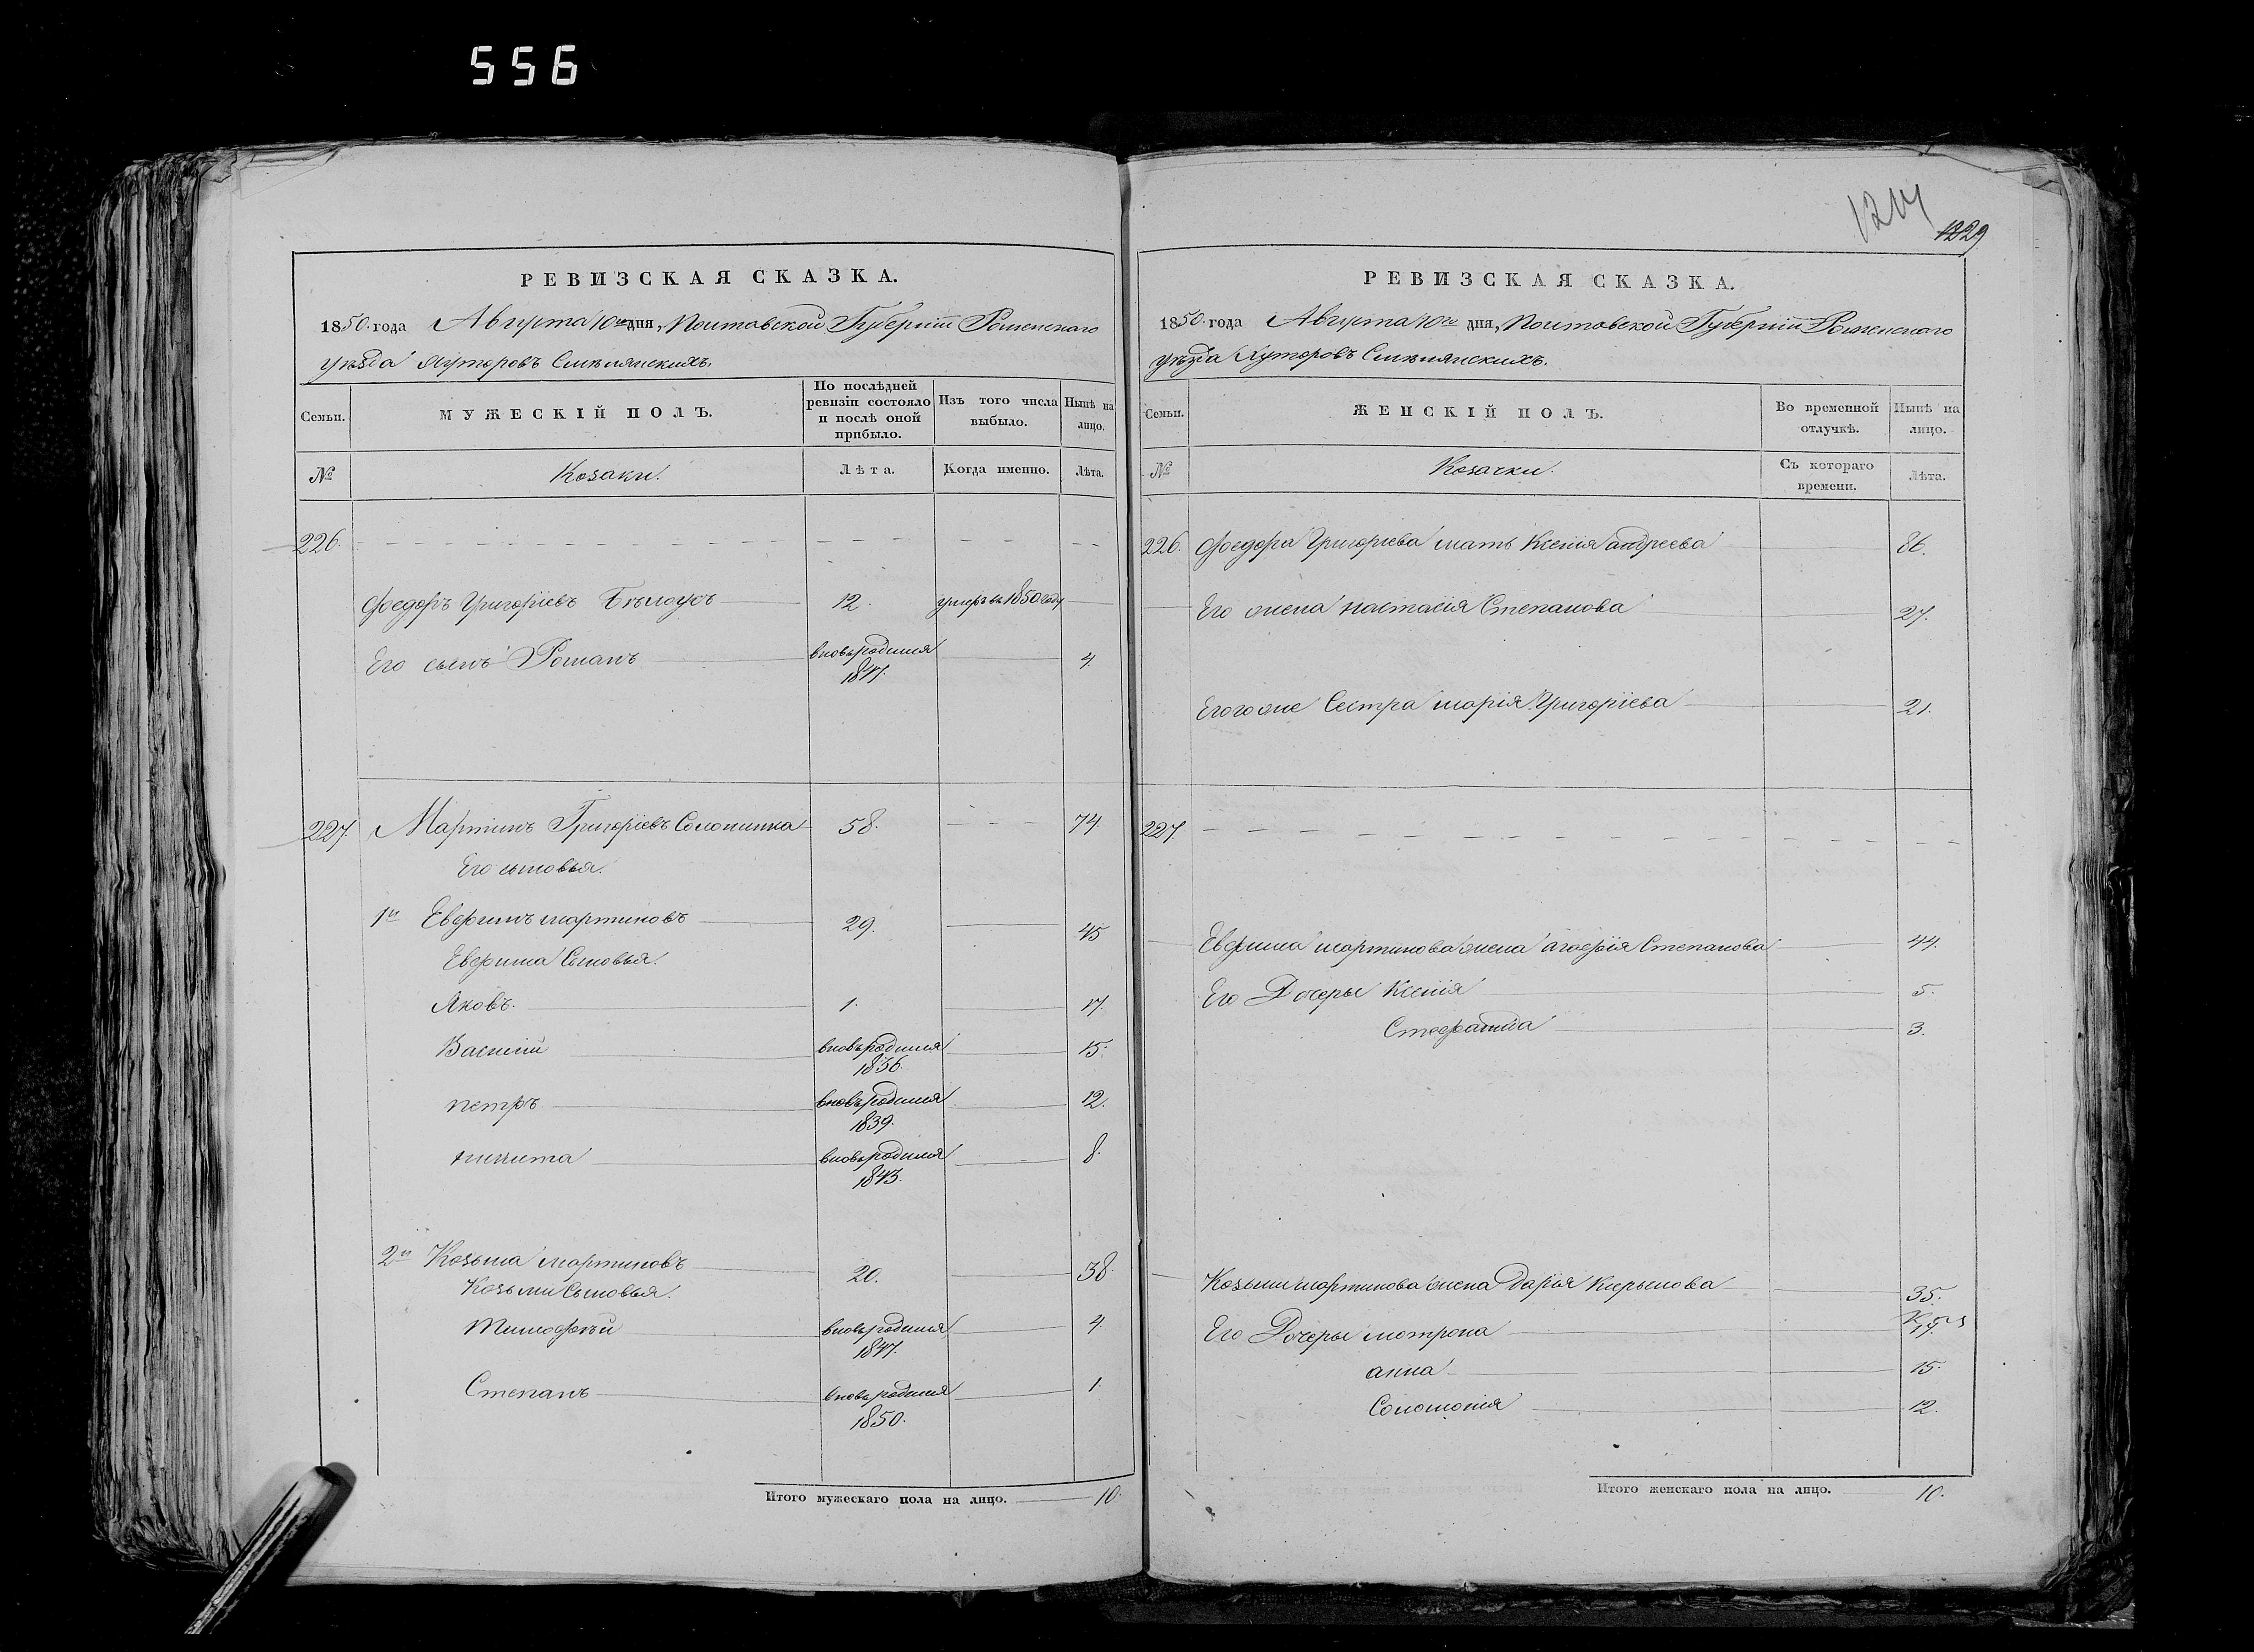 556
1214
1229
РЕВИЗСКАЯ СКАЗКА.
1850 года Августа 10го дня, Полтавской Губерніи Роменскаго
уѣзда Хуторовъ Смѣлянскихъ.
Семьи.
МУЖЕСКІЙ ПОЛЪ.
По послѣдней ревизіи состояло и послѣ оной прибыло.
Изъ того числа выбыло.
Нынѣ на лицо.
№
Козаки.
Лѣта.
Когда именно.
Лѣта.
226.
Федоръ Григоріевъ Бѣлоусъ 12. умеръ въ 1850 году
Его сынъ Романъ вновь родился 1847. 4
227. Мартинъ Григоріевъ Солопипка 58. 74.
Его сыновья.
1й Евфимъ мартиновъ 29. 45
Евфима Сыновья.
Яковъ. 1. 17.
Василій вновь родился 1836. 15.
петръ вновь родился 1839. 12.
никита вновь родился 1843. 8.
2й Козьма мартиновъ 20. 38.
Козьми Сыновья.
Тимофѣй вновь родился 1847. 4.
Степанъ вновь родился 1850. 1.
Итого мужескаго пола на лицо. 10.
РЕВИЗСКАЯ СКАЗКА.
1850 года Августа 10го дня, Полтавской Губерніи Роменскаго
уѣзда Хуторовъ Смѣлянскихъ.
Семьи.
ЖЕНСКІЙ ПОЛЪ.
Во временной отлучкѣ.
Нынѣ на лицо.
№
Козачки.
Съ котораго времени.
Лѣта.
226. Федора Григоріева мать Ксенія андреева 86.
Его жена настасія Степанова 27.
Егого же Сестра марія Григоріева 21.
227.
Евфима мартинова жена агафія Степанова 44.
Его Дочеры Ксенія 5.
Стефанида 3.
Козьми мартинова жена Дарія Кирылова 35.
Его Дочеры мотрона 17.
анна 15.
Соломонія 12.
Итого женскаго пола на лицо. 10.